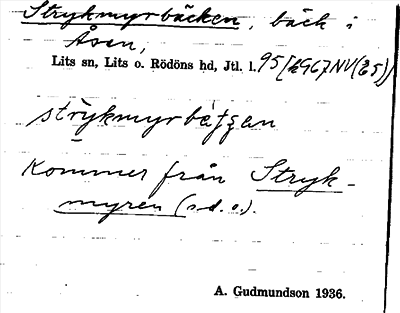 Strykmyrbäcken, bäck i
Åsen,
Lits sn, Lits o. Rödöns hd, Jtl. l. 95
strykmyr
Kommer från Stryk-
myren (s.d.o.).
A. Gudmundson 1936.